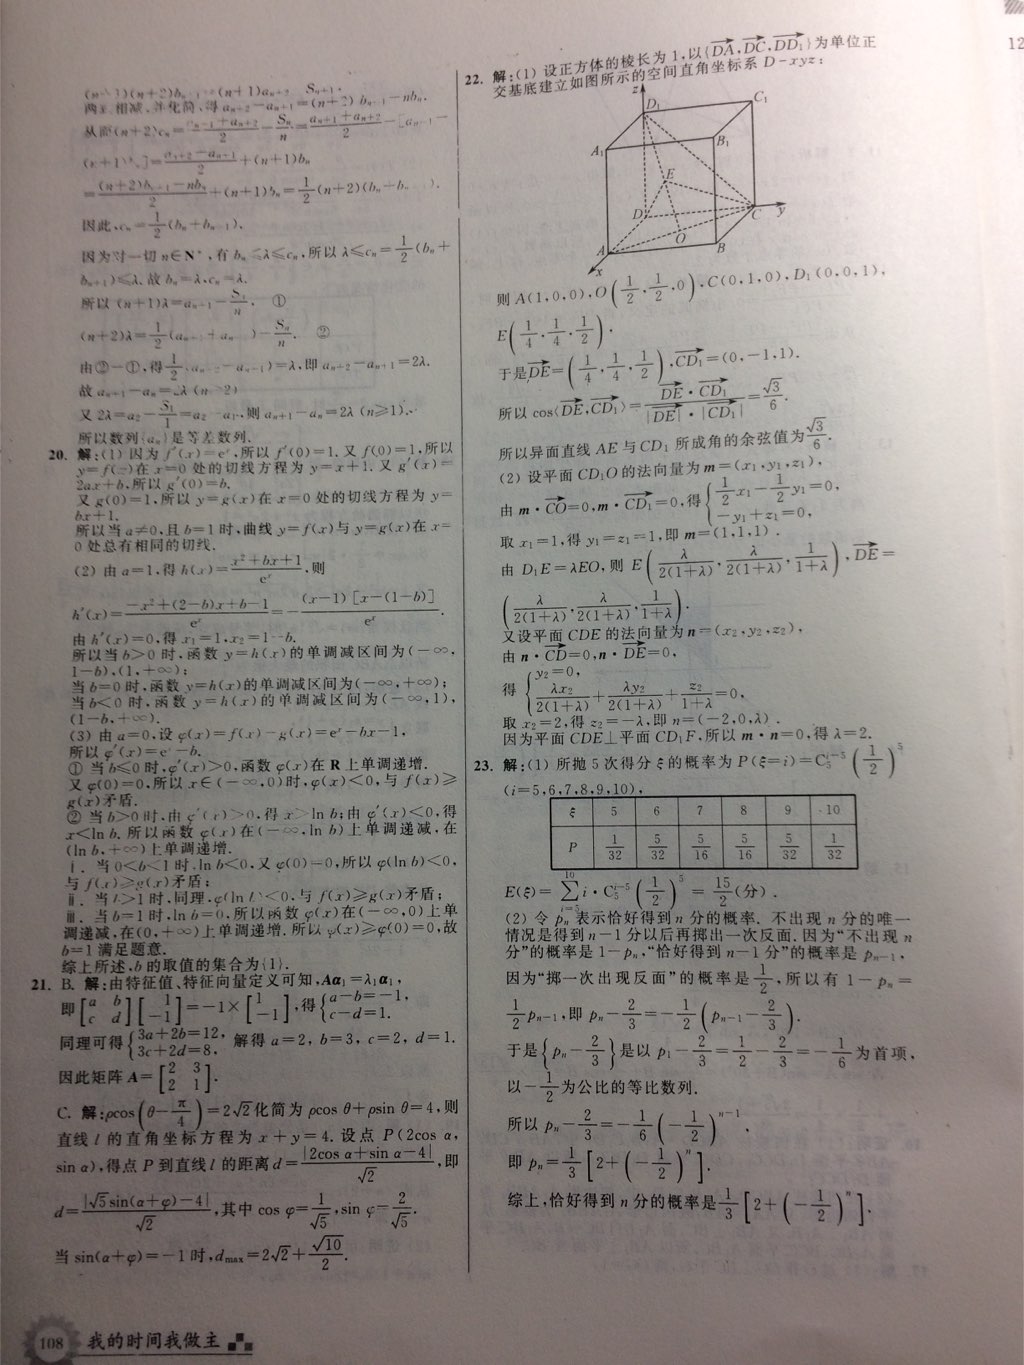 两式相减、并化简、得aₙ₊₂−aₙ₊₁=(n+2)bₙ₊₁−nbₙ.
+(n+1)bₙ
因此,cₙ=1/2(bₙ+bₙ₊₁),
因为对一切n∈N*,有bₙ≤λ≤cₙ,所以λ≤cₙ=1/2(bₙ+
bₙ₊₁)≤λ.故bₙ=λ,cₙ=λ.
所以(n+1)λ=aₙ₊₁−Sₙ/n. ①
(n+2)λ=1/2(aₙ₊₁+aₙ₊₂)−Sₙ/n. ②
由②−①,得1/2(aₙ₊₂−aₙ₊₁)=λ,即aₙ₊₂−aₙ₊₁=2λ.
故aₙ₊₁−aₙ=2λ(n≥2)
又2λ=a₂−S₁/1=a₂−a₁,则aₙ₊₁−aₙ=2λ(n≥1).
所以数列{aₙ}是等差数列.
20. 解:(1) 因为f′(x)=eˣ,所以f′(0)=1.又f(0)=1,所以
y=f(x)在x=0处的切线方程为y=x+1.又g′(x)=
2ax+b,所以g′(0)=b.
又g(0)=1,所以y=g(x)在x=0处的切线方程为y=
bx+1.
所以当a≠0,且b=1时,曲线y=f(x)与y=g(x)在x=
0处总有相同的切线.
(2) 由a=1,得h(x)=(x²+bx+1)/eˣ,则
h′(x)=(−x²+(2−b)x+b−1)/eˣ=−(x−1)[x−(1−b)]/eˣ.
由h′(x)=0,得x₁=1,x₂=1−b.
所以当b>0时,函数y=h(x)的单调减区间为(−∞,
1−b),(1,+∞);
当b=0时,函数y=h(x)的单调减区间为(−∞,+∞);
当b<0时,函数y=h(x)的单调减区间为(−∞,1),
(1−b,+∞).
(3) 由a=0,设φ(x)=f(x)−g(x)=eˣ−bx−1,
所以φ′(x)=eˣ−b.
① 当b≤0时,φ′(x)>0,函数φ(x)在R上单调递增.
又φ(0)=0,所以x∈(−∞,0)时,φ(x)<0,与f(x)≥
g(x)矛盾.
② 当b>0时,由φ′(x)>0,得x>ln b;由φ′(x)<0,得
x<ln b.所以函数φ(x)在(−∞,ln b)上单调递减,在
(ln b,+∞)上单调递增.
ⅰ. 当0<b<1时,ln b<0,又φ(0)=0,所以φ(ln b)<0,
与f(x)≥g(x)矛盾;
ⅱ. 当b>1时,同理,φ(ln b)<0,与f(x)≥g(x)矛盾;
ⅲ. 当b=1时,ln b=0,所以函数φ(x)在(−∞,0)上单
调递减,在(0,+∞)上单调递增.所以φ(x)≥φ(0)=0,故
b=1满足题意.
综上所述,b的取值的集合为{1}.
21. B. 解:由特征值、特征向量定义可知,Aα₁=λ₁α₁,
即[a b; c d][1; −1]=−1×[1; −1],得{a−b=−1, c−d=1.
同理可得{3a+2b=12, 3c+2d=8, 解得a=2, b=3, c=2, d=1.
因此矩阵A=[2 3; 2 1].
C. 解:ρcos(θ−π/4)=2√2化简为ρcos θ+ρsin θ=4,则
直线l的直角坐标方程为x+y=4.设点P(2cos α,
sin α),得点P到直线l的距离d=|2cos α+sin α−4|/√2,即
d=|√5sin(α+φ)−4|/√2,其中cos φ=1/√5,sin φ=2/√5.
当sin(α+φ)=−1时,dₘₐₓ=2√2+√10/2.
108 我的时间我做主
22. 解:(1) 设正方体的棱长为1,以{DA,DC,DD₁}为单位正
交基底建立如图所示的空间直角坐标系D-xyz:
z
D₁
C₁
A₁
B₁
E
D
C
y
O
A
B
x
则A(1,0,0),O(1/2,1/2,0),C(0,1,0),D₁(0,0,1),
E(1/4,1/4,1/2),
于是DE=(1/4,1/4,1/2),CD₁=(0,−1,1).
所以cos⟨DE,CD₁⟩=DE·CD₁/|DE|·|CD₁|=√3/6.
所以异面直线AE与CD₁所成角的余弦值为√3/6.
(2) 设平面CD₁O的法向量为m=(x₁,y₁,z₁),
由m·CO=0,m·CD₁=0,得{1/2x₁−1/2y₁=0, −y₁+z₁=0,
取x₁=1,得y₁=z₁=1,即m=(1,1,1).
由D₁E=λEO,则E(λ/2(1+λ),λ/2(1+λ),1/1+λ),DE=
(λ/2(1+λ),λ/2(1+λ),1/1+λ).
又设平面CDE的法向量为n=(x₂,y₂,z₂),
由n·CD=0,n·DE=0,
得{y₂=0, λx₂/2(1+λ)+λy₂/2(1+λ)+z₂/1+λ=0,
取x₂=2,得z₂=−λ,即n=(−2,0,λ).
因为平面CDE⊥平面CD₁F,所以m·n=0,得λ=2.
23. 解:(1) 所抛5次得分ξ的概率为P(ξ=i)=C₅ⁱ⁻⁵(1/2)⁵
(i=5,6,7,8,9,10),
ξ 5 6 7 8 9 10
P 1/32 5/32 5/16 5/16 5/32 1/32
E(ξ)=∑(i=5→10) i·C₅ⁱ⁻⁵(1/2)⁵=15/2(分).
(2) 令pₙ表示恰好得到n分的概率. 不出现n分的唯一
情况是得到n−1分以后再掷出一次反面.因为“不出现n
分”的概率是1−pₙ,“恰好得到n−1分”的概率是pₙ₋₁,
因为“掷一次出现反面”的概率是1/2,所以有1−pₙ=
1/2pₙ₋₁,即pₙ−2/3=−1/2(pₙ₋₁−2/3).
于是{pₙ−2/3}是以p₁−2/3=1/2−2/3=−1/6为首项,
以−1/2为公比的等比数列.
所以pₙ−2/3=−1/6(−1/2)ⁿ⁻¹,
即pₙ=1/3[2+(−1/2)ⁿ].
综上,恰好得到n分的概率是1/3[2+(−1/2)ⁿ].
12